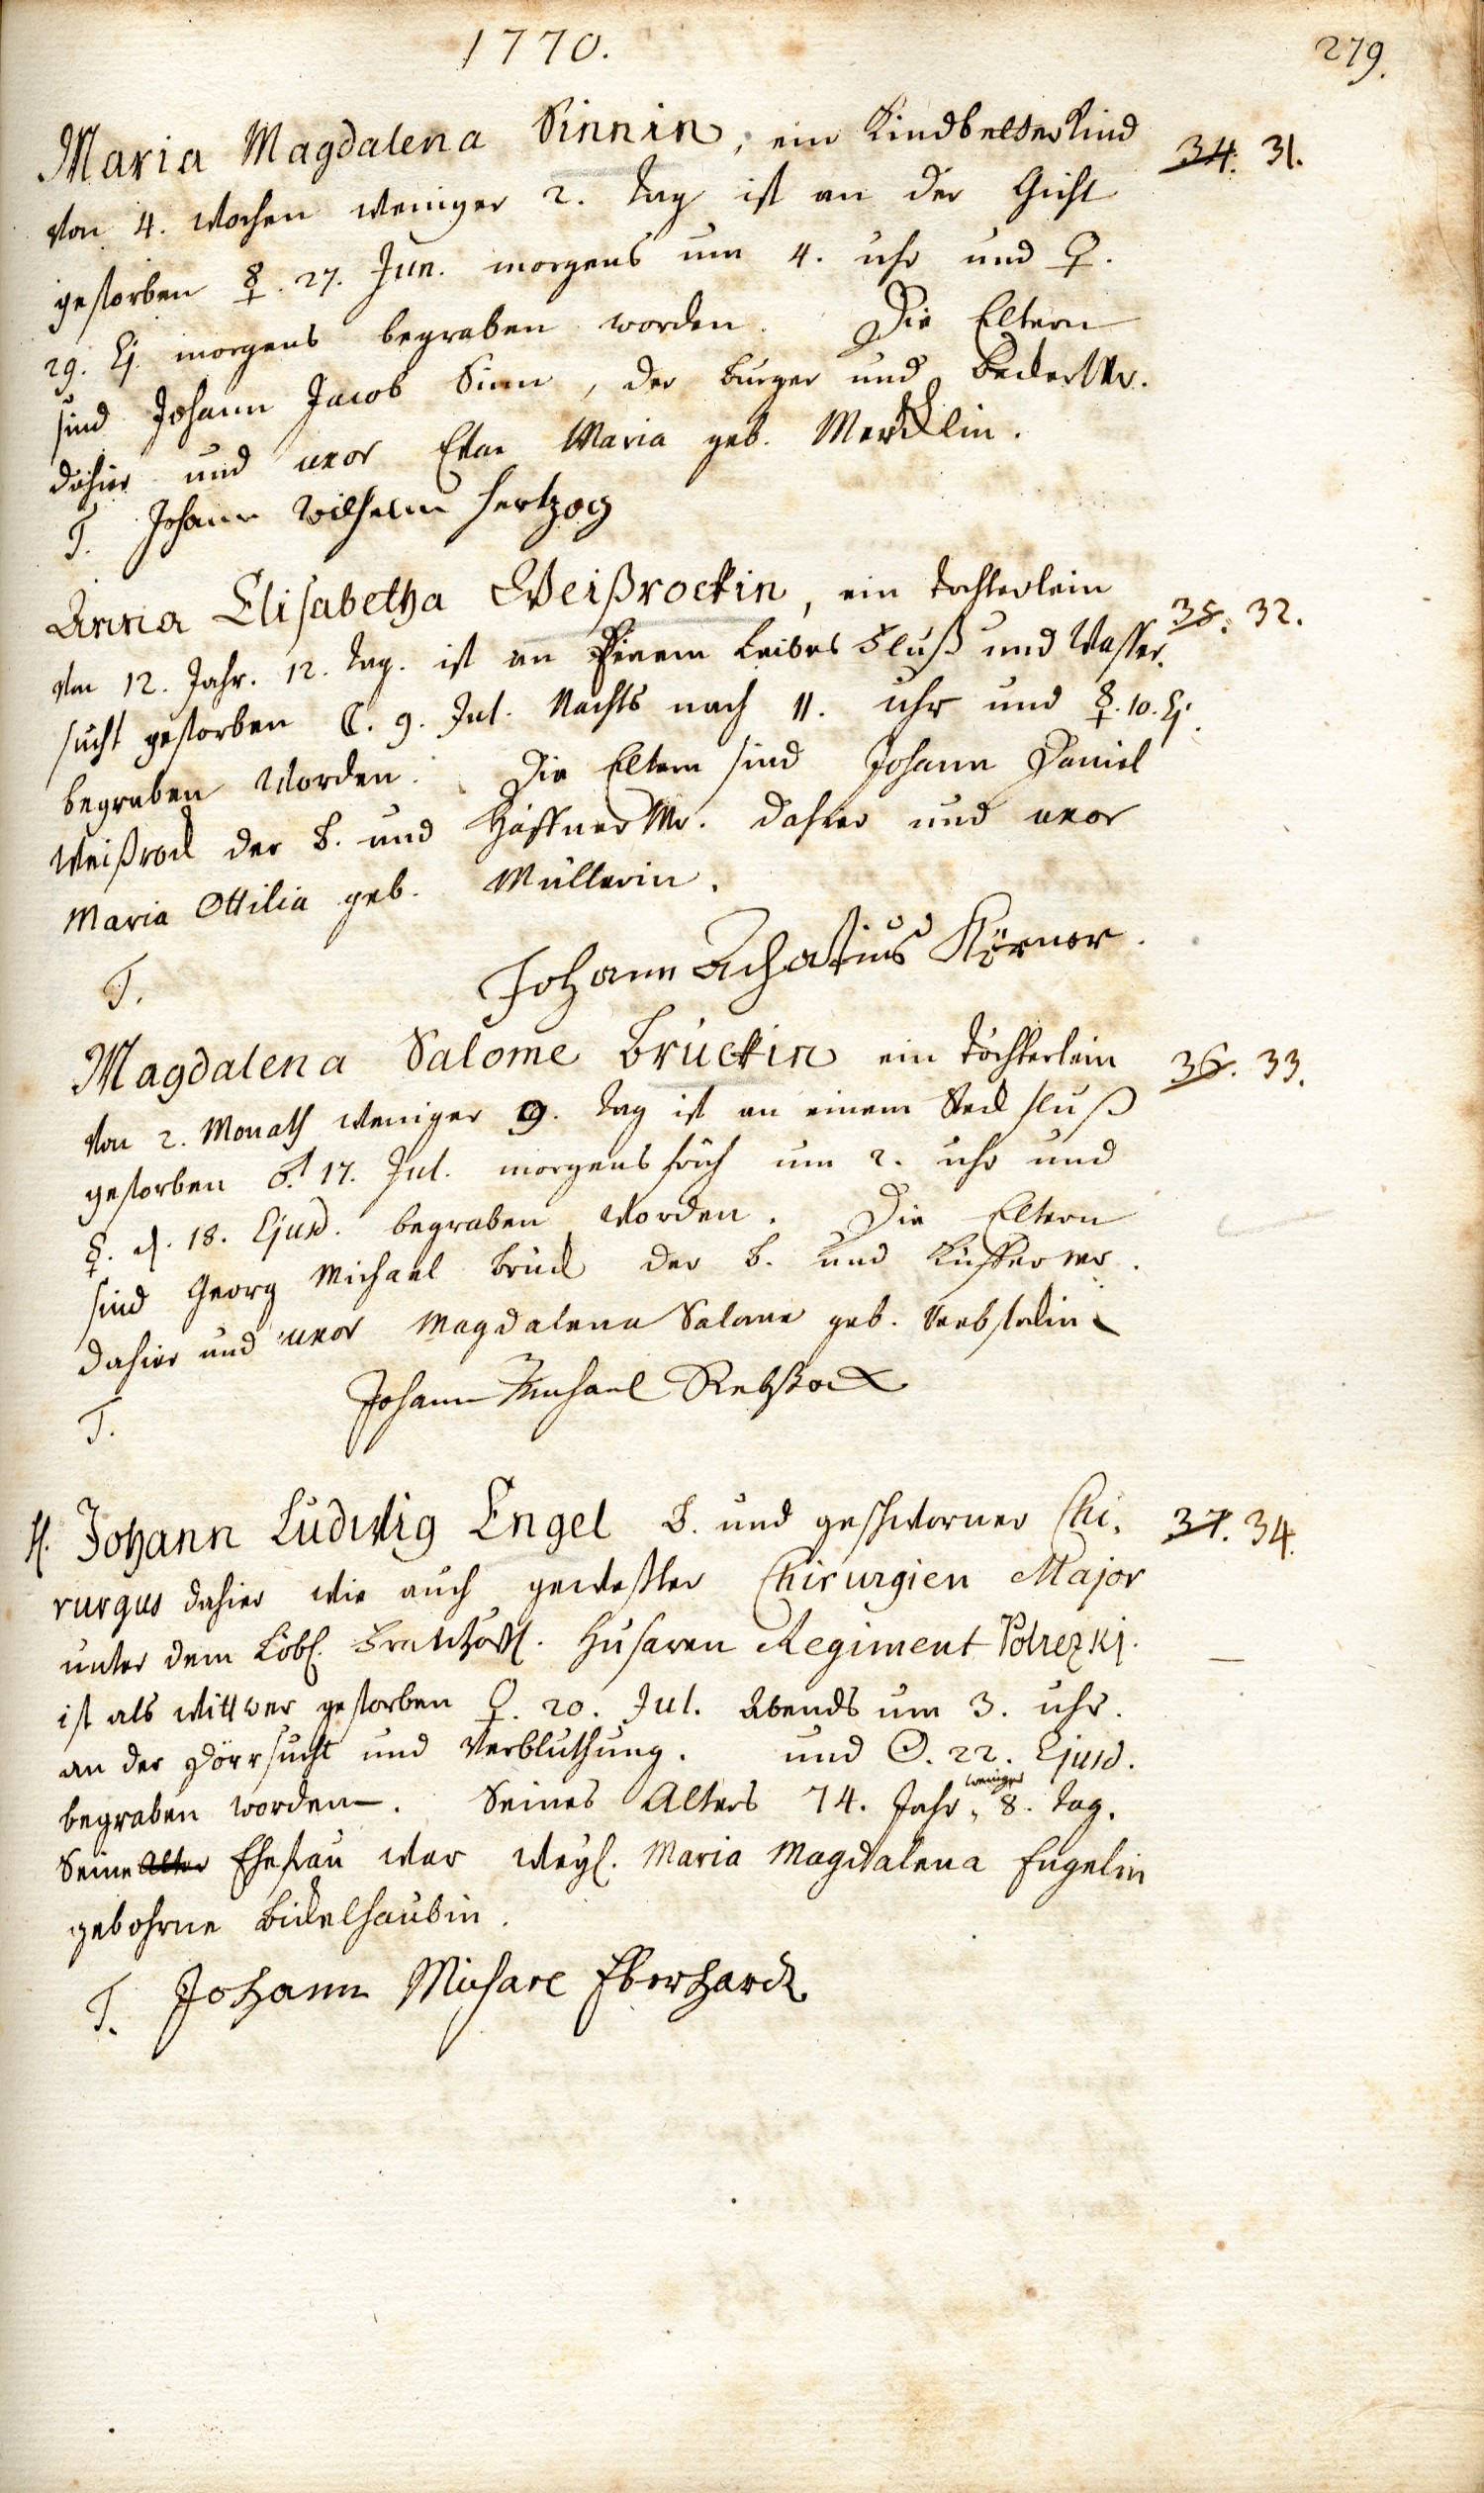 1770.
279.
Maria Magdalena Sinnin, ein Kindbetterkind
34. 31.
von 4. Wochen weniger 2. Tag ist an der Gicht
gestorben ☿. 27. Jun. morgens um 4. uhr und ♀.
29. Ej. morgens begraben worden. Die Eltern
sind Johann Jacob Sinn, der burger und BeckerMr.
dahier und uxor Eva Maria geb. Mercklin.
T. Johann Wilhelm Hertzog
Anna Elisabetha Weißrockin, ein töchterlein
35. 32.
von 12. Jahr. 12. Tag. ist an Leibes Fluß und Wasser-
sucht gestorben ☾. 9. Jul. Nachts nach 11. uhr und ☿. 10. Ej.
begraben worden. Die Eltern sind Johann Daniel
Weißrock der B. und Häffner Mr. dahier und uxor
Maria Ottilia geb. Müllerin.
T. Johann Achatius Körner.
Magdalena Salome Brückin ein töchterlein
36. 33.
von 2. Monath weniger 9. Tag ist an einem Steckfluß
gestorben ♂. 17. Jul. morgens früh um 2. uhr und
☿. d. 18. Ejusd. begraben worden. Die Eltern
sind Georg Michael Brück der B. und Küffer Mr.
dahier und uxor Magdalena Salome geb. Rebstockin
T. Johann Michael Rebstock
H. Johann Ludwig Engel B. und geschworner Chi-
37. 34.
rurgus dahier wie auch gewester Chirurgien Major
unter dem Löbl. Husaren Regiment
ist als Wittwer gestorben ♀. 20. Jul. Abends um 3. uhr.
an der Dörrsucht und Verbluthung. und ☉. 22. Ejusd.
begraben worden. Seines Alters 74. Jahr, weniger 8. Tag.
Seine Alter Ehefrau war weyl. Maria Magdalena Engelin
gebohrne Bickelhaubin.
T. Johann Michael Eberhardt